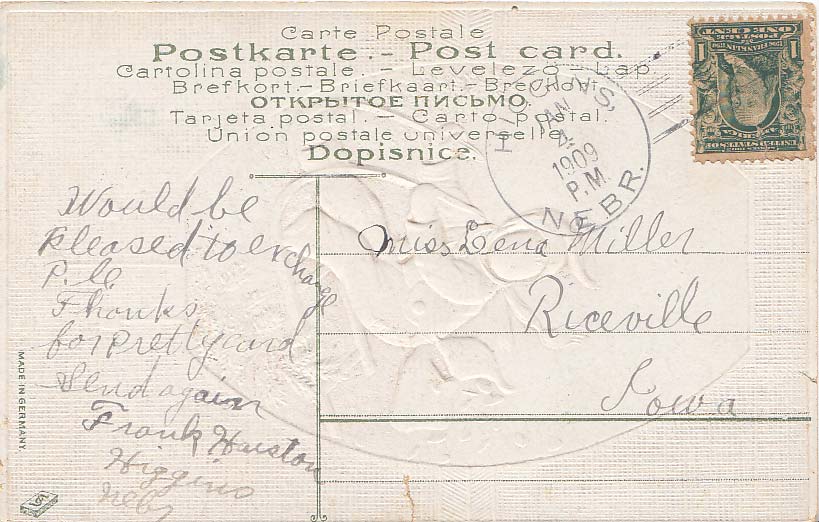 Carte Postale
Postkarte.- Post card.
Cartolina postale. - Levelezö - Lap
Brefkort.- Briefkaart.- Brevkort.
ОТКРЫТОЕ ПИСЬМО.
Tarjeta postal. - Carto postal.
Union postale universelle.
Dopisnice.
JAN
4
1909
P.M.
NEBR.
UNITED STATES OF AMERICA
1706 FRANKLIN 1790
POSTAGE
ONE CENT
1 1
Would be
Pleased to exchange
P.C.
Thanks
for pretty card
Send again
Frank
Higgins
Nebr
Miss Lena Miller
Riceville
Iowa
MADE IN GERMANY